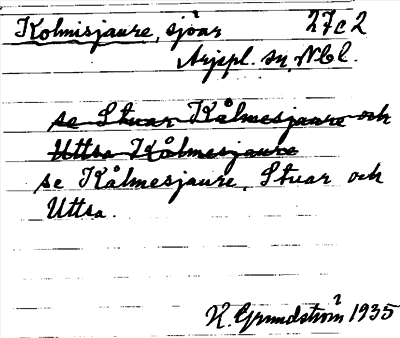 Kolmisjaure, sjöar 27c2
Arjspl. sn, Nbl.
se Stuor Kålmesjaure och
Uttsa Kålmesjaure
se Kålmesjaure, Stuar och
Uttsa.
K. Grundström 1935